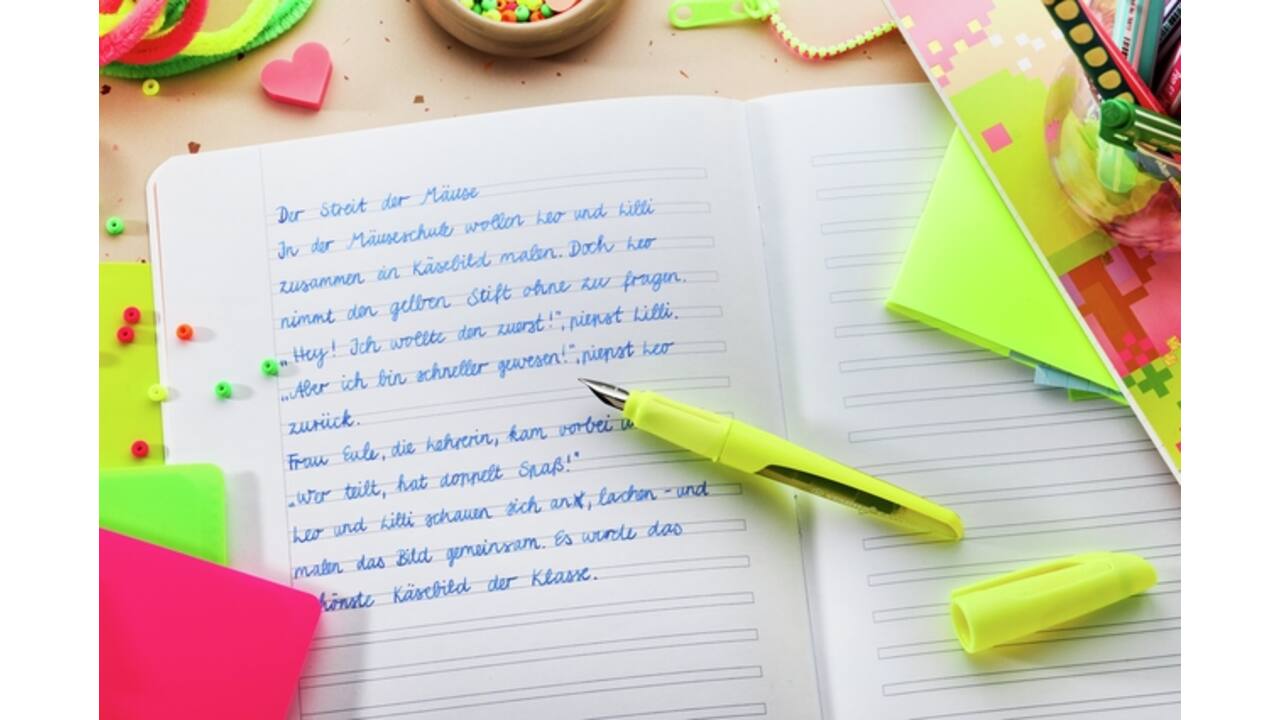 Der Streit der Mäuse
In der Mäuseschule wollen Leo und Lilli
zusammen ein Käsebild malen. Doch Leo
nimmt den gelben Stift ohne zu fragen.
„Hey! Ich wollte den zuerst!", piepst Lilli.
„Aber ich bin schneller gewesen!", piepst Leo
zurück.
Frau Eule, die Lehrerin, kam vorbei
„Wer teilt, hat doppelt Spaß!"
Leo und Lilli schauen sich an, lachen - und
malen das Bild gemeinsam. Es wurde das
Käsebild der Klasse.